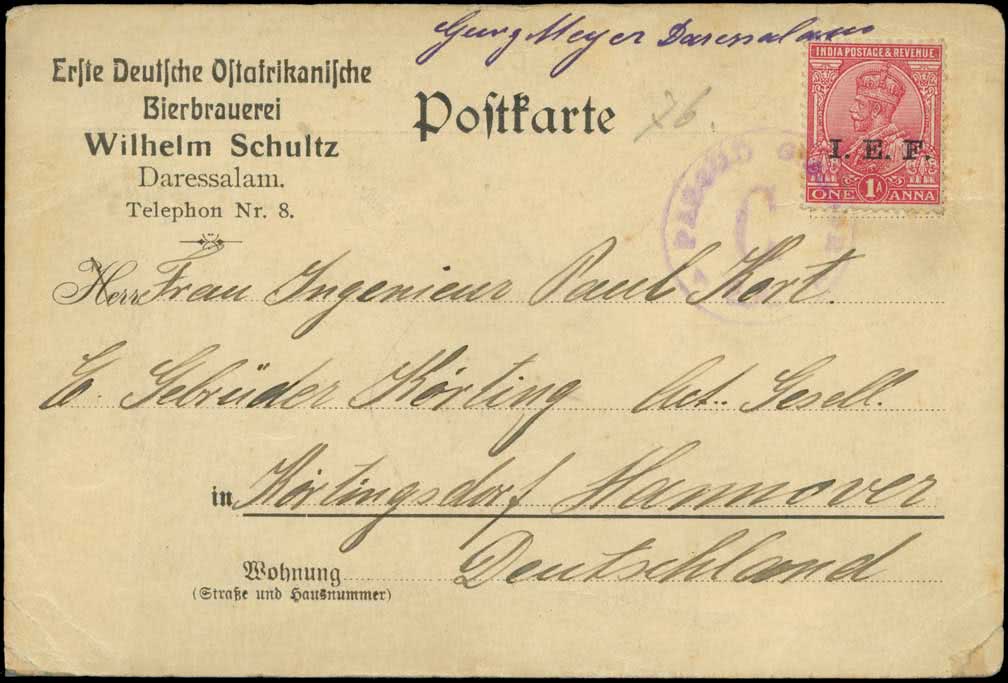 Georg Meyer Daressalam
Erſte Deutſche Oſtafrikaniſche
Bierbrauerei
Wilhelm Schultz
Daressalam.
Telephon Nr. 8.
Poſtkarte
76.
INDIA POSTAGE & REVENUE
I. E. F.
ONE 1A ANNA
PASSED
C
Herrn Frau Ingenieur Paul Kort.
Gebrüder Körting Act. Gesell.
in Körtingsdorf Hannover
Deutschland
Wohnung
(Straße und Hausnummer)